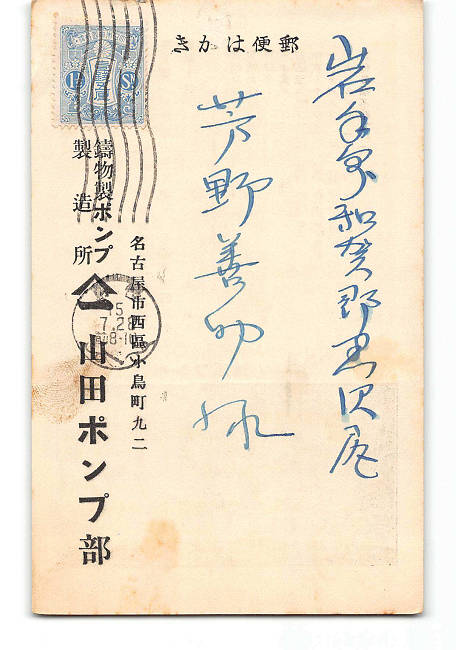 郵便はかき
岩手縣和賀郡黒沢尻
芳野善助様
名古屋市西區小鳥町九二
鑄物製ポンプ
製造所
山田ポンプ部
1½ Sn
15
7.28